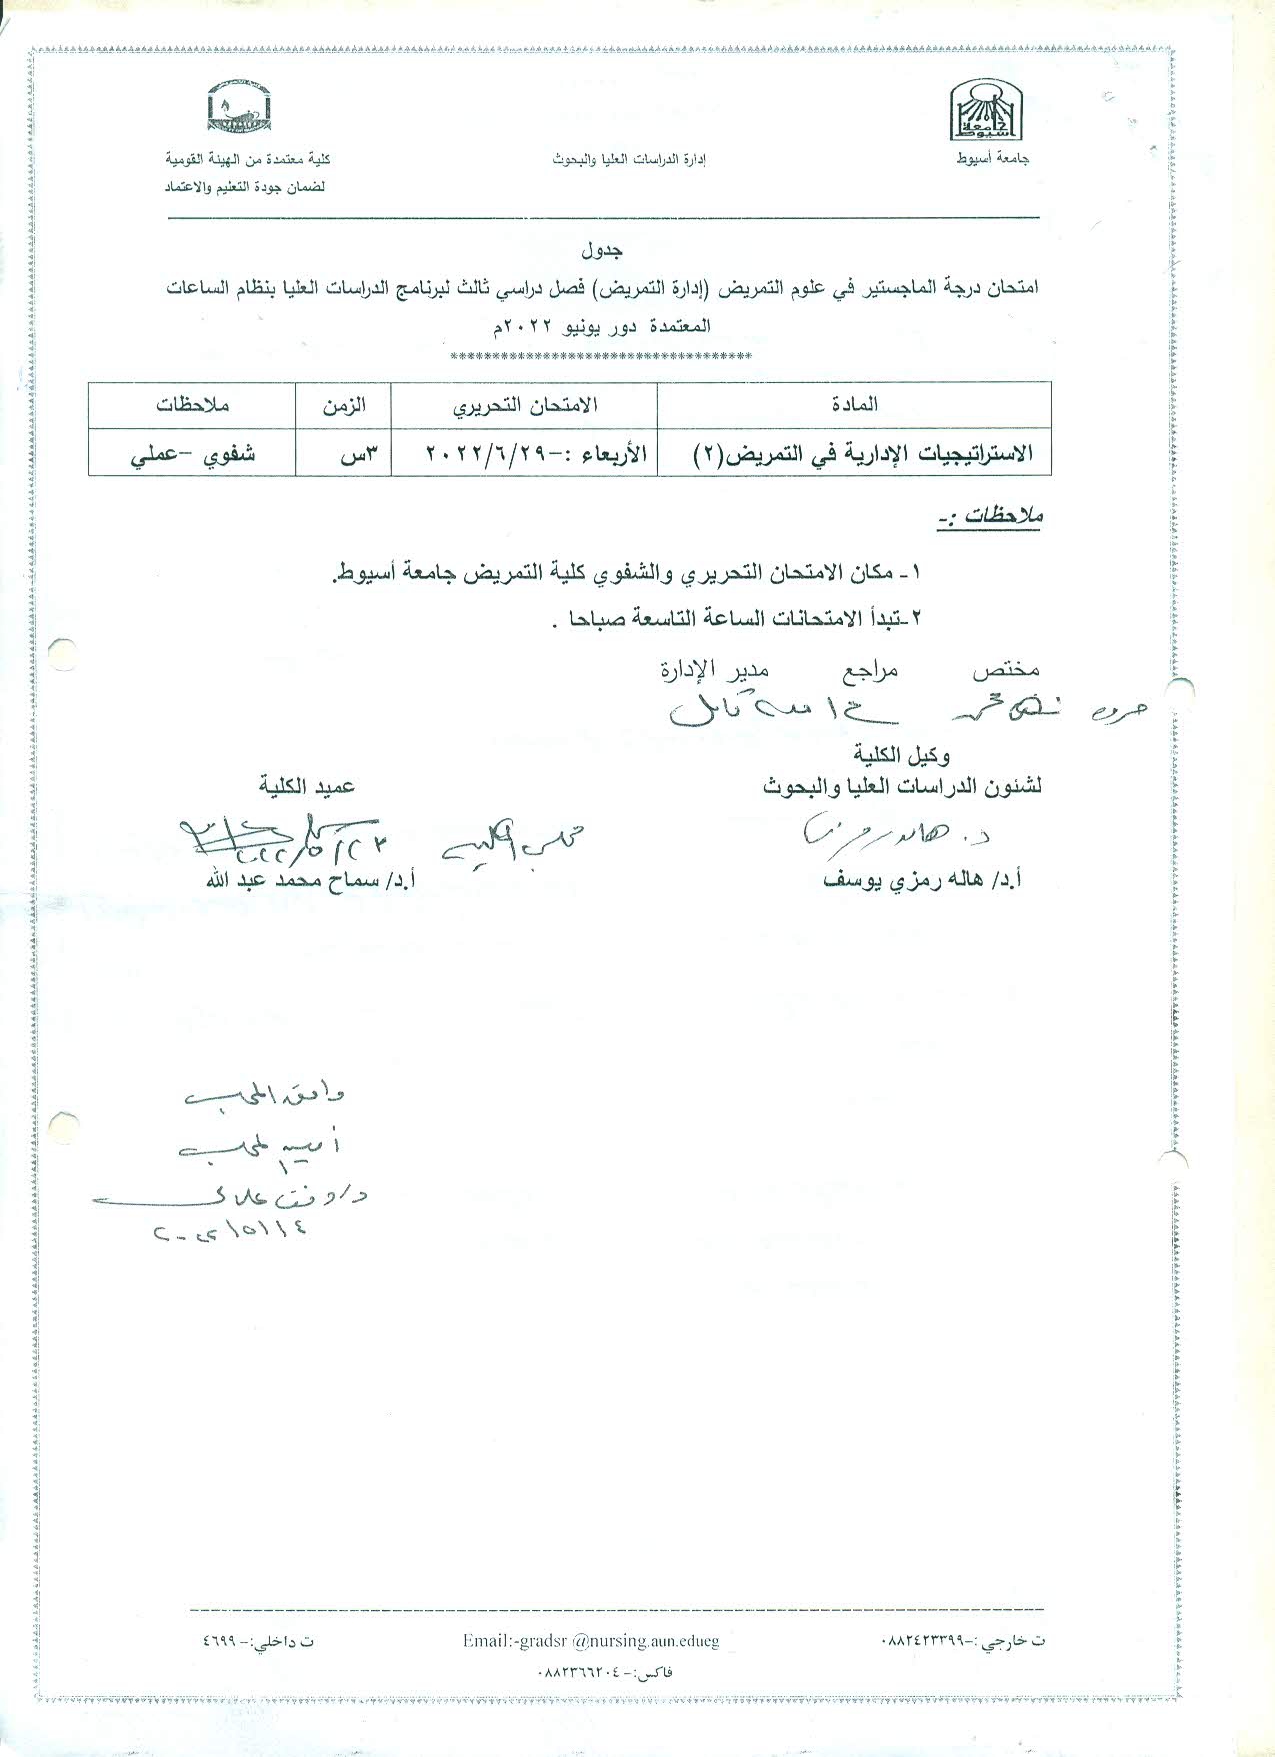 جامعة أسيوط
إدارة الدراسات العليا والبحوث
كلية معتمدة من الهيئة القومية
لضمان جودة التعليم والاعتماد
جدول
امتحان درجة الماجستير في علوم التمريض (إدارة التمريض) فصل دراسي ثالث لبرنامج الدراسات العليا بنظام الساعات
المعتمدة دور يونيو ٢٠٢٢م
***********************************
المادة الامتحان التحريري الزمن ملاحظات
الاستراتيجيات الإدارية في التمريض(٢) الأربعاء :-٢٠٢٢/٦/٢٩ ٣س شفوي –عملي
ملاحظات :-
١- مكان الامتحان التحريري والشفوي كلية التمريض جامعة أسيوط.
٢-تبدأ الامتحانات الساعة التاسعة صباحا .
مختص مراجع مدير الإدارة
وكيل الكلية
لشئون الدراسات العليا والبحوث
عميد الكلية
مجلس الكلية
أ.د/ هاله رمزي يوسف
أ.د/ سماح محمد عبد الله
وافق المجلس
أمين المجلس
ت خارجي :-٠٨٨٢٤٢٣٣٩٩ Email:-gradsr @nursing.aun.edueg ت داخلي:-٤٦٩٩
فاكس:-٠٨٨٢٣٦٦٢٠٤